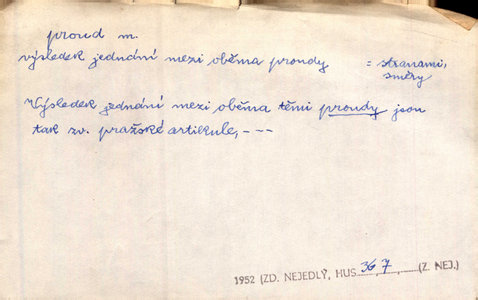 proud m.
výsledek jednání mezi oběma proudy = stranami,
směry
Výsledek jednání mezi oběma těmi proudy jsou
tak zv. pražské artikule, – – –
1952 (ZD. NEJEDLÝ, HUS 36, 7 (Z. NEJ.)